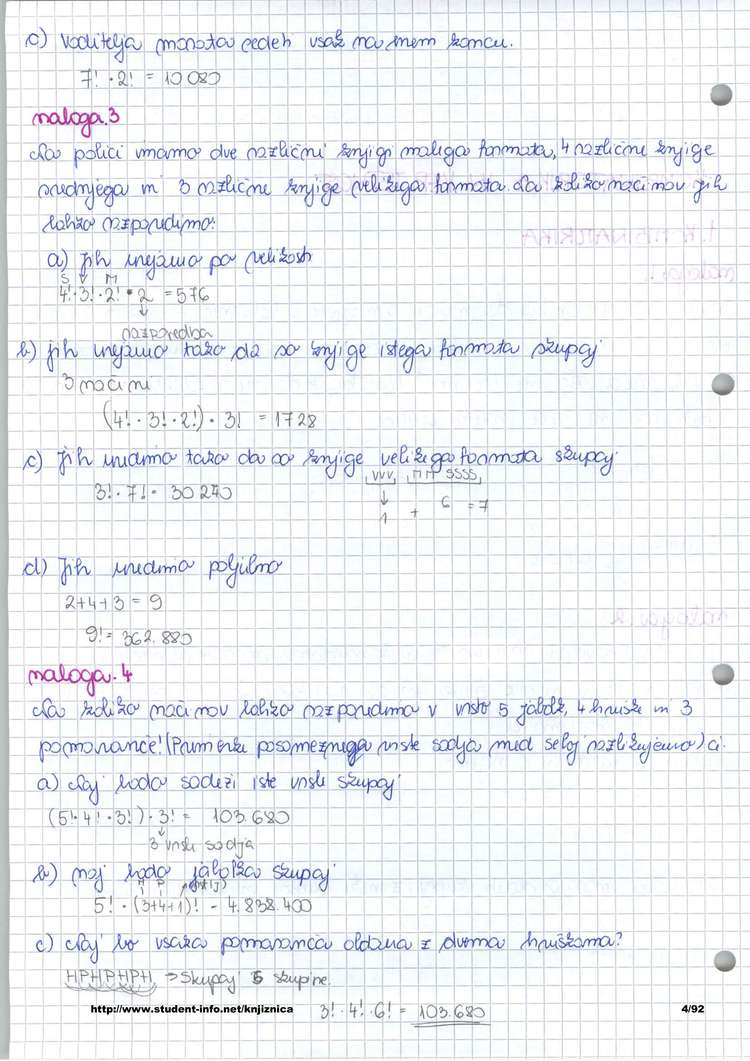 c) voditelja morata sedeti vsak na enem koncu.
7! · 2! = 10 080
naloga.3
Na polici imamo dve različni knjigi malega formata, 4 različne knjige
srednjega in 3 različne knjige velikega formata. Na koliko načinov jih
lahko razporedimo:
a) jih urejamo po velikosti
S V M
4! · 3! · 2! · 2 = 576
↓
razporedba
b) jih urejamo tako da so knjige istega formata skupaj
3 načini
(4! · 3! · 2!) · 3! = 1728
c) jih uredimo tako da so knjige velikega formata skupaj
VVV, MM SSSS,
3! · 7! = 30 240
↓
1 + 6 = 7
d) jih uredimo poljubno
2+4+3 = 9
9! = 362.880
naloga.4
Na koliko načinov lahko razporedimo v vrsto 5 jabolk, 4 hruške in 3
pomaranče! (Primerke posameznega vrste sadja med seboj razlikujemo) če:
a) Naj bodo sadeži iste vrste skupaj
(5! · 4! · 3!) · 3! = 103.680
↓
3 vrste sadja
b) naj bodo jabolka skupaj
H P
5! · (3+4+1)! = 4.838.400
c) Naj bo vsaka pomaranča obdana z dvema hruškama?
HPHPHPH → skupaj 6 skupine.
3! · 4! · 6! = 103.680
http://www.student-info.net/knjiznica
4/92